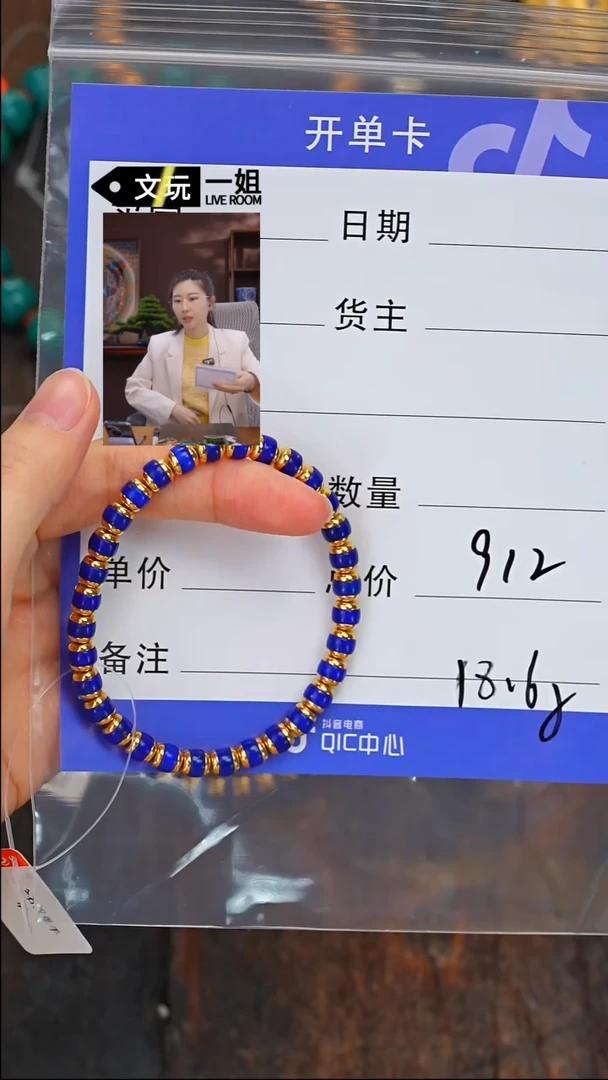 开单卡
文玩 一姐
LIVE ROOM
日期
货主
数量
单价
总价 912
备注 18.6g
抖音电商
QIC中心